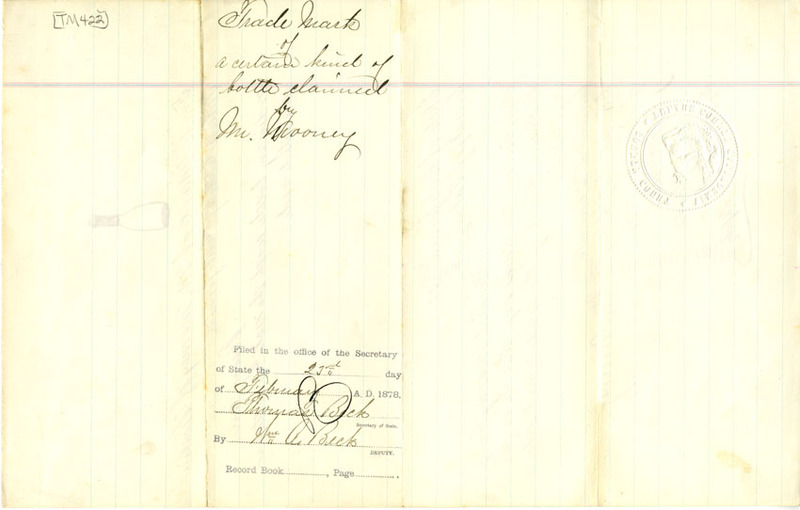 [TM422]
Trade Mark
of
a certain kind of
bottle claimed
by
M. Mooney
Filed in the office of the Secretary
of State the 23rd day
of February A. D. 1878.
Thomas Beck
Secretary of State.
By Wm A. Beck
DEPUTY.
Record Book , Page .